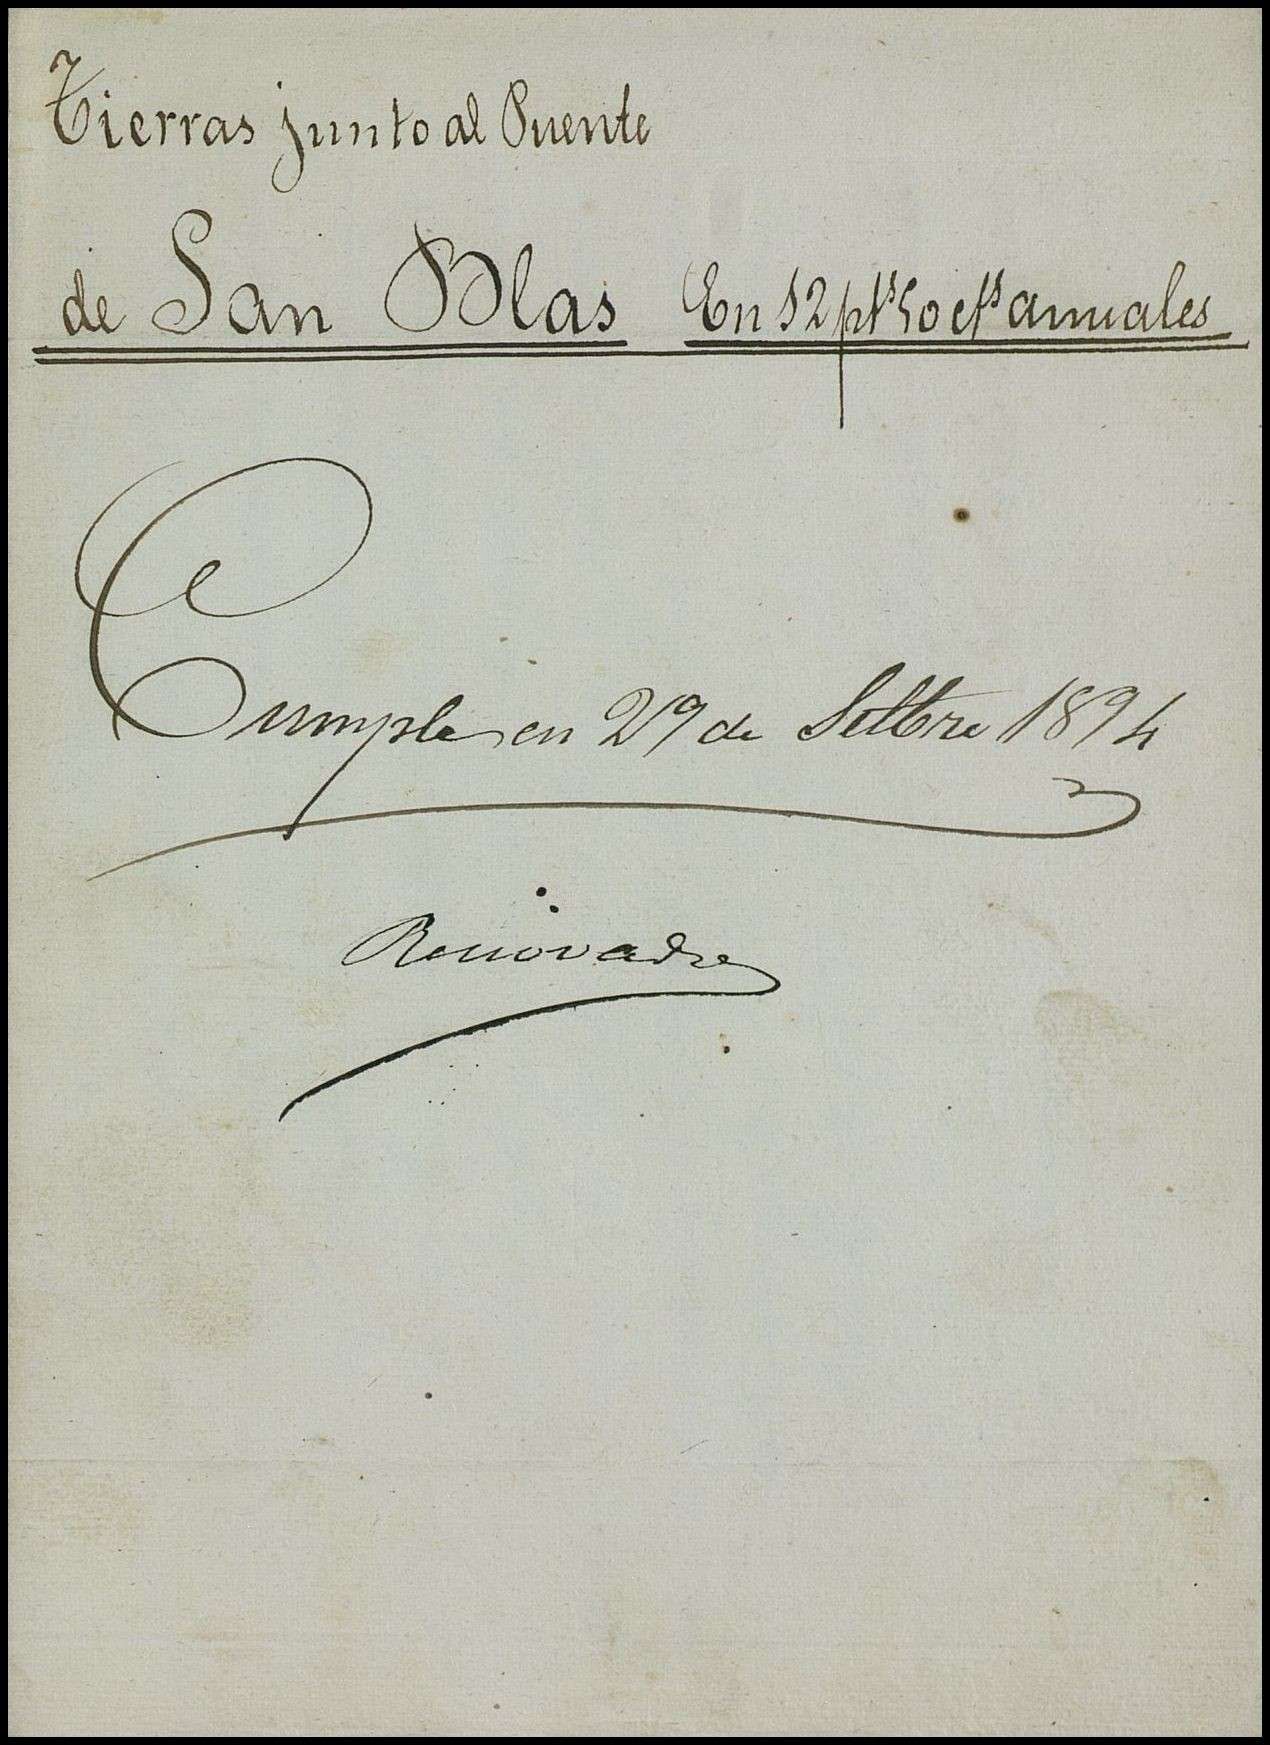 Tierras junto al Puente
de San Blas En 12 pts 50 cts anuales
Cumple en 29 de Settbre 1894
Renovada